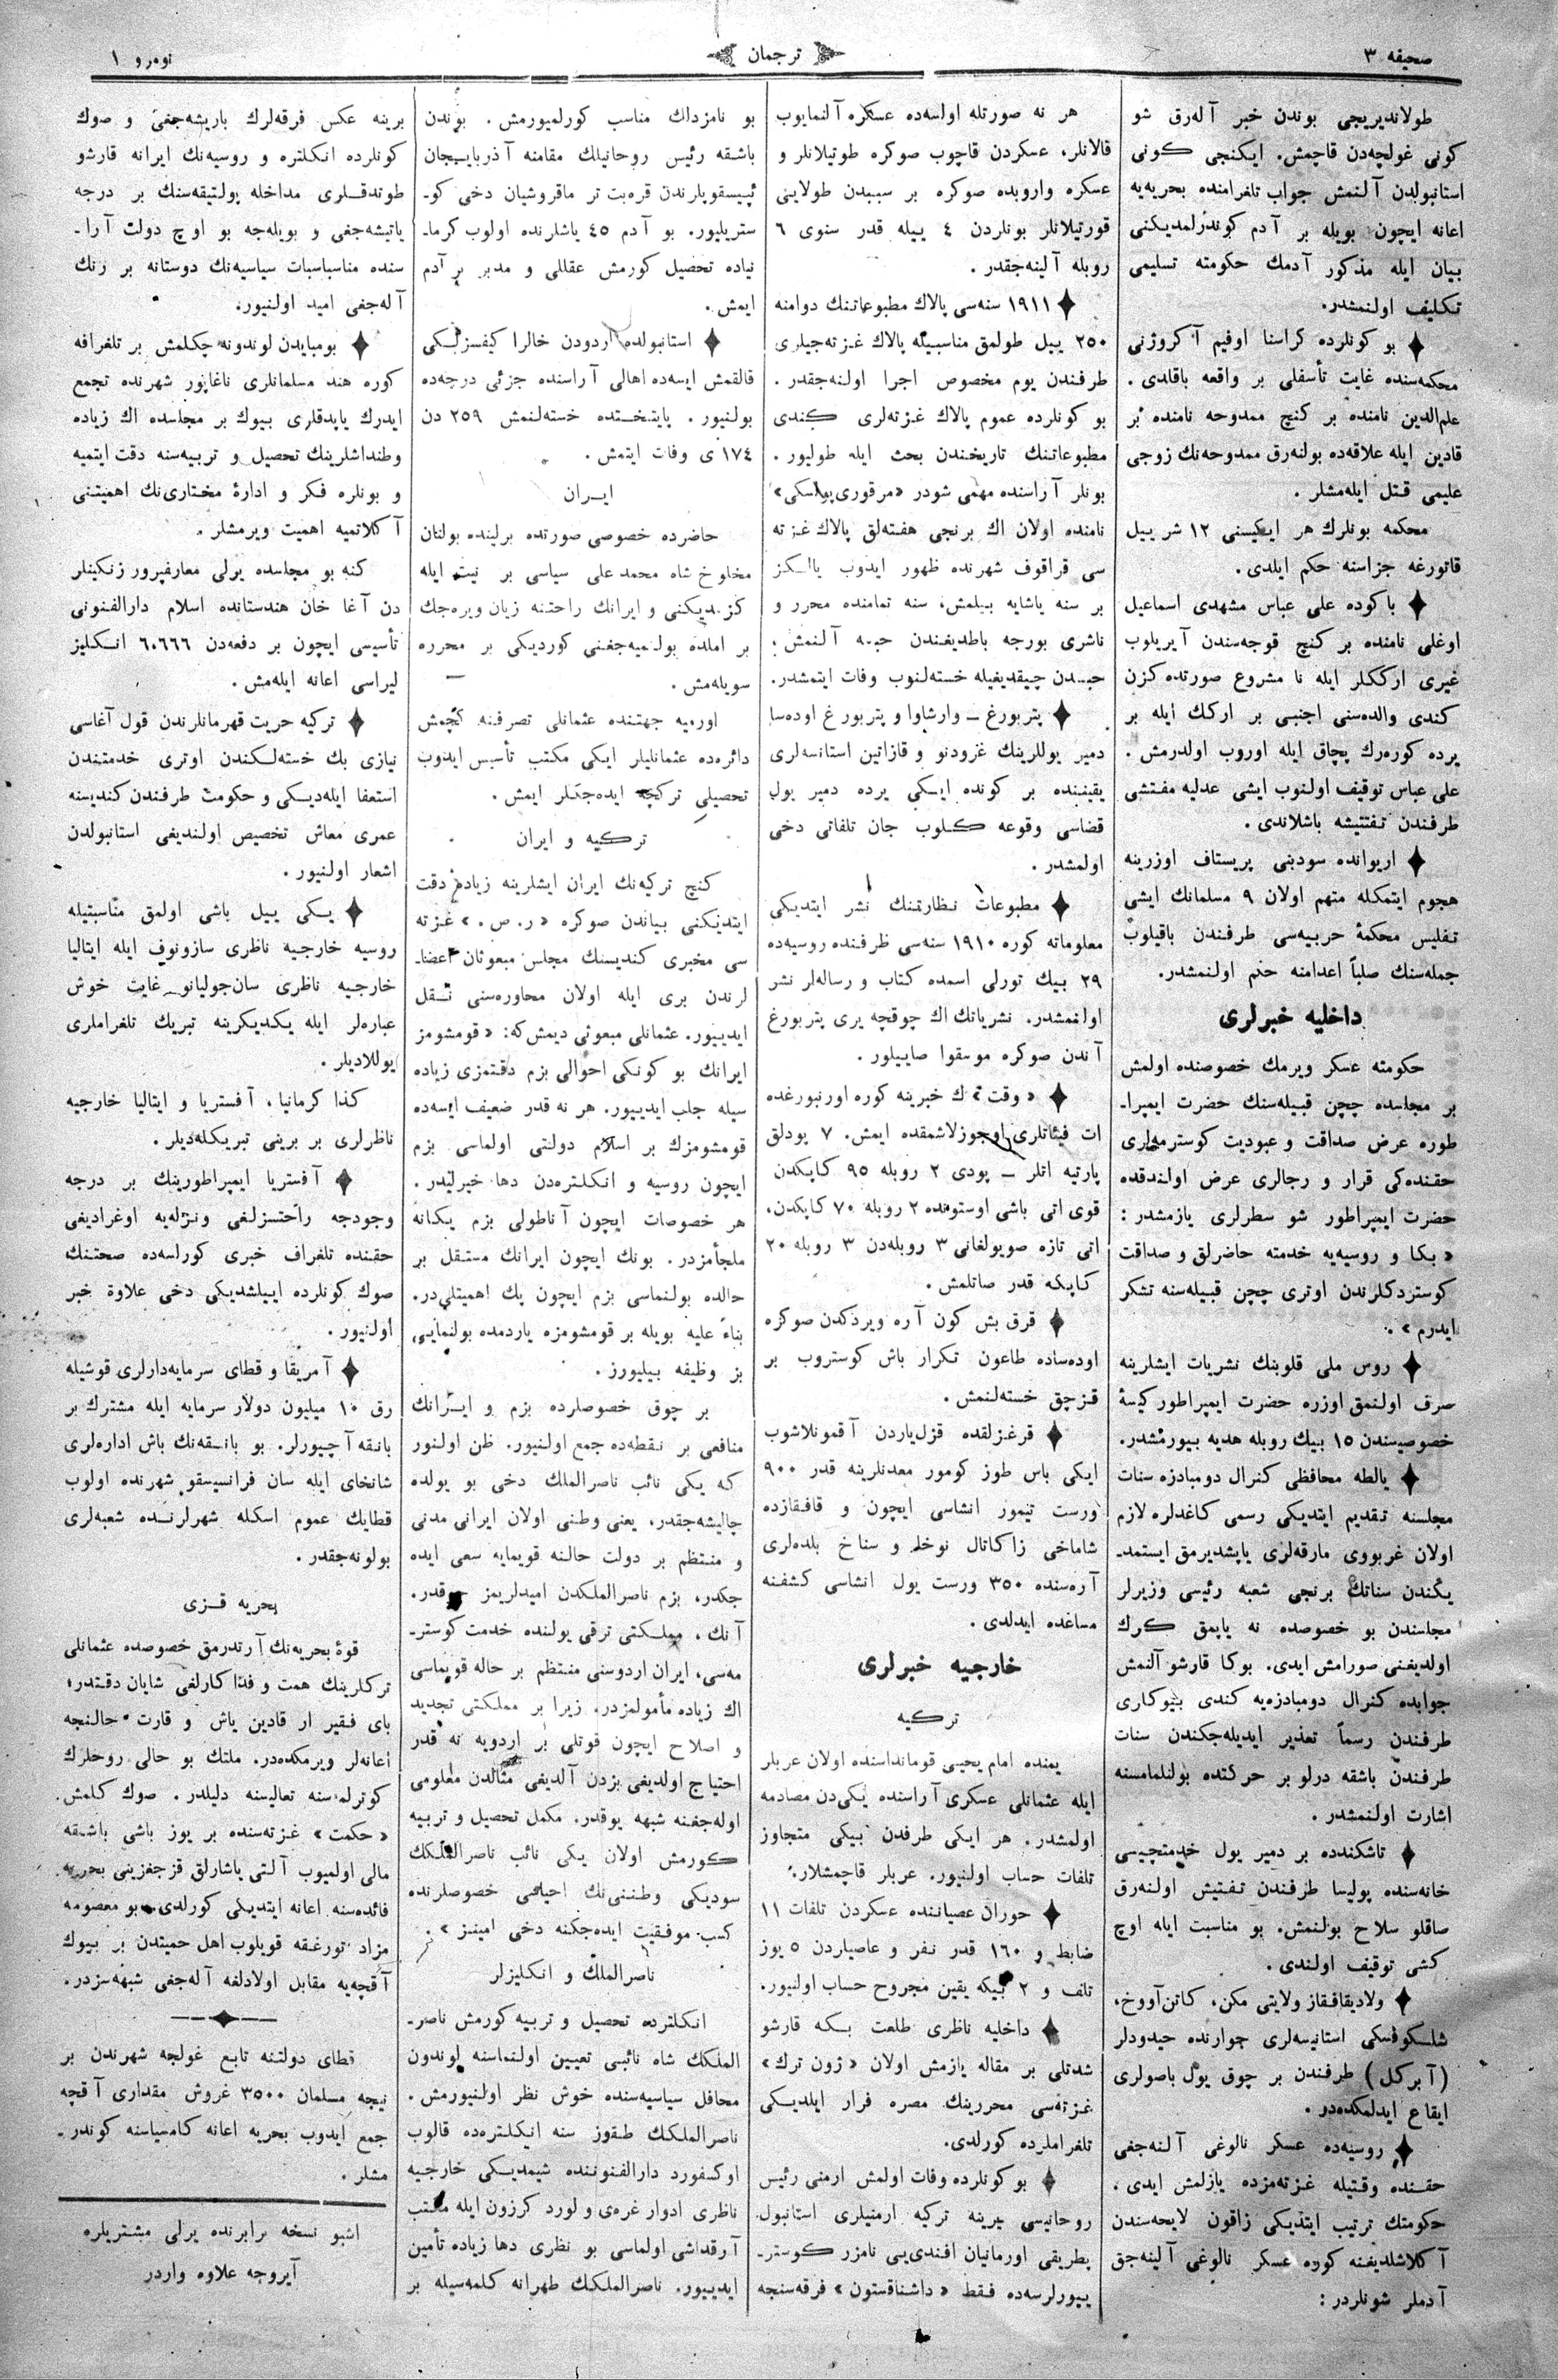 صحیفه ٣
ترجمان
نومرو ١
طولاندیریجی بوندن خبر آله‌رق شو
كونی غولچه‌دن قاچمش. ایكنجی كونی
استانبولدن آلنمش جواب تلغرامنده بحریه‌یه
اعانه ایچون بویله بر آدم كوندرلمدیكنی
بیان ایله مذكور آدمك حكومته تسلیمی
تكلیف اولنمشدر.
بو كونلرده كراسنا اوفیم آكروژنی
محكمه‌سنده غایت تأسفلی بر واقعه باقلدی.
علم‌الدین نامنده بر كنچ ممدوحه نامنده بر
قادین ایله علاقه‌ده بولنه‌رق ممدوحه‌نك زوجی
علیمی قتل ایله‌مشلر.
محكمه بونلرك هر ایكیسنی ١٢ شر ییل
قاتورغه جزاسنه حكم ایلدی.
باكوده علی عباس مشهدی اسماعیل
اوغلی نامنده بر كنچ قوجه‌سندن آیریلوب
غیری ارككلر ایله نا مشروع صورتده كزن
كندی والده‌سنی اجنبی بر اركك ایله بر
یرده كوره‌رك پچاق ایله اوروب اولدرمش.
علی عباس توقیف اولنوب ایشی عدلیه مفتشی
طرفندن تفتیشه باشلاندی.
اریوانده سودبنی پریستاف اوزرینه
هجوم ایتمكله متهم اولان ٩ مسلمانك ایشی
تفلیس محكمهٔ حربیه‌سی طرفندن باقیلوب
جمله‌سنك صلباً اعدامنه حكم اولنمشدر.
داخلیه خبرلری
حكومته عسكر ویرمك خصوصنده اولمش
بر مجلسده چچن قبیله‌سنك حضرت ایمپرا-
طوره عرض صداقت و عبودیت كوسترمه‌لری
حقنده‌كی قرار و رجالری عرض اولندقده
حضرت ایمپراطور شو سطرلری یازمشدر:
«بكا و روسیه‌یه خدمته حاضرلق و صداقت
كوستردكلرندن اوتری چچن قبیله‌سنه تشكر
ایدرم».
روس ملی قلوبنك نشریات ایشلرینه
صرف اولنمق اوزره حضرت ایمپراطور كیسهٔ
خصوصیسندن ١٥ بیك روبله هدیه بیورمشدر.
یالطه محافظی كنرال دومبادزه سنات
مجلسنه تقدیم ایتدیكی رسمی كاغدلره لازم
اولان غربووی مارقه‌لری یاپشدیرمق ایستمد-
یكندن سناتك برنجی شعبه رئیسی وزیرلر
مجلسندن بو خصوصده نه یاپمق كرك
اولدیغنی صورامش ایدی. بوكا قارشو آلنمش
جوابده كنرال دومبادزه‌یه كندی بیوكاری
طرفندن رسماً تعذیر ایدیله‌جكندن سنات
طرفندن باشقه درلو بر حركتده بولنلمامسنه
اشارت اولنمشدر.
تاشكندده بر دمیر یول خدمتچیسی
خانه‌سنده پولیسا طرفندن تفتیش اولنه‌رق
صاقلو سلاح بولنمش. بو مناسبت ایله اوچ
كشی توقیف اولندی.
ولادیقافقاز ولایتی مكن، كاتن‌آووخ،
شلكوفسكی استانیسه‌لری جوارنده حیدودلر
(آبركل) طرفندن بر چوق یول باصولری
ایقاع ایدلمكده‌در.
روسیه‌ده عسكر نالوغی آلنه‌جغی
حقنده وقتیله غزته‌مزده یازلمش ایدی.
حكومتك ترتیب ایتدیكی زاقون لایحه‌سندن
آكلاشلدیغنه كوره عسكر نالوغی آلینه‌جق
آدملر شونلردر:
هر نه صورتله اولسه‌ده عسكره آلنمایوب
قالانلر، عسكردن قاچوب صوكره طوتیلانلر و
عسكره واروبده صوكره بر سببدن طولاینی
قورتیلانلر بونلردن ٤ ییله قدر سنوی ٦
روبله آلینه‌جقدر.
١٩١١ سنه‌سی پالاك مطبوعاتنك دوامنه
٢٥٠ ییل طولمق مناسبیله پالاك غزته‌جیلری
طرفندن یوم مخصوص اجرا اولنه‌جقدر.
بو كونلرده عموم پالاك غزته‌لری كندی
مطبوعاتنك تاریخندن بحث ایله طولیور.
بونلر آراسنده مهمی شودر «مرقوری پولسكی»
نامنده اولان اك برنجی هفته‌لق پالاك غزته
سی قراقوف شهرنده ظهور ایدوب یالكز
بر سنه یاشایه بیلمش، سنه تمامنده محرر و
ناشری بورجه باطدیغندن حبسه آلنمش؛
حبسدن چیقدیغیله خسته‌لنوب وفات ایتمشدر.
پتربورغ ــ وارشاوا و پتربورغ اوده‌سا
دمیر یوللرینك غرودنو و قازاتین استانسه‌لری
یقیننده بر كونده ایكی یرده دمیر یول
قضاسی وقوعه كلوب جان تلفاتی دخی
اولمشدر.
مطبوعات نظارتنك نشر ایتدیكی
معلوماته كوره ١٩١٠ سنه‌سی ظرفنده روسیه‌ده
٢٩ بیك تورلی اسمده كتاب و رساله‌لر نشر
اولنمشدر. نشریاتك اك چوقچه یری پتربورغ
آندن صوكره موسقوا صاییلور.
«وقت»ك خبرینه كوره اورنبورغده
ات فیئاتلری اوجوزلاشمقده ایمش. ٧ پودلق
پارتیه اتلر ــ پودی ٢ روبله ٩٥ كاپكدن
قوی اتی باشی اوستونده ٢ روبله ٧٠ كاپكدن،
اتی تازه صویولغانی ٣ روبله‌دن ٣ روبله ٢٠
كاپكه قدر صاتلمش.
قرق بش كون آره ویردكدن صوكره
اوده‌ساده طاعون تكرار باش كوستروب بر
قزچق خسته‌لنمش.
قرغزلقده قزل‌یاردن آقمونلاشوب
ایكی باس طوز كومور معدنلرینه قدر ٩٠٠
ورست تیمور انشاسی ایچون و قافقازده
شاماخی زاكاتال نوخه و سناخ بلده‌لری
آره‌سنده ٣٥٠ ورست یول انشاسی كشفنه
مساغده ایدلدی.
خارجیه خبرلری
تركیه
یمنده امام یحیی قوماندا‌سنده اولان عربلر
ایله عثمانلی عسكری آراسنده یكی‌دن مصادمه
اولمشدر. هر ایكی طرفدن بیكی متجاوز
تلفات حساب اولنیور. عربلر قاچمشلار.
حوران عصیاننده عسكردن تلفات ١١
ضابط و ١٦٠ قدر نفر و عاصیاردن ٥ یوز
تلف و ٢ بیكه یقین مجروح حساب اولنیور.
داخلیه ناظری طلعت بكه قارشو
شدتلی بر مقاله یازمش اولان «ژون ترك»
غزته‌سی محررینك مصره فرار ایلدیكی
تلغراملرده كورلدی.
بو كونلرده وفات اولمش ارمنی رئیس
روحانیسی یرینه تركیه ارمنیلری استانبول
بطریقی اورمانیان افندی‌یی نامزد كوستر-
ییورلرسه‌ده فقط «داشناقستون» فرقه‌سنجه
بو نامزدلك مناسب كورلمیورمش. بوندن
باشقه رئیس روحانیلك مقامنه آذربایجان
ئپیسقوپلرندن قره‌بت تر ماقروشیان دخی كو-
ستریلیور. بو آدم ٤٥ یاشلرنده اولوب كرما-
نیاده تحصیل كورمش عقللی و مدبر بر آدم
ایمش.
استانبولده اردودن خالرا كیفسزلیكی
قالقمش ایسه‌ده اهالی آراسنده جزئی درجه‌ده
بولنیور. پایتختده خسته‌لنمش ٢٥٩ دن
١٧٤ ی وفات ایتمش.
ایران
حاضرده خصوصی صورتده برلینده بولنان
مخلوع شاه محمد علی سیاسی بر نیت ایله
كزمدیكنی و ایرانك راحتنه زیان ویره‌جك
بر املده بولنمیه‌جغنی كوردیكی بر محرره
سویله‌مش.
اورمیه جهتنده عثمانلی تصرفنه كچمش
دائره‌ده عثمانلیلر ایكی مكتب تأسیس ایدوب
تحصیلی تركیچه ایده‌جكلر ایمش.
تركیه و ایران
كنچ تركیه‌نك ایران ایشلرینه زیاده دقت
ایتدیكنی بیاندن صوكره «ر. ص.» غزته
سی مخبری كندیسنك مجلس مبعوثان اعضا-
لرندن بری ایله اولان محاوره‌سنی نقل
ایدییور. عثمانلی مبعوثی دیمش‌كه: «قومشومز
ایرانك بو كونكی احوالی بزم دقتمزی زیاده
سیله جلب ایدییور. هر نه قدر ضعیف ایسه‌ده
قومشومزك بر اسلام دولتی اولماسی بزم
ایچون روسیه و انكلتره‌دن دها خیرلیدر.
هر خصوصات ایچون آناطولی بزم یكانه
ملجأمزدر. بونك ایچون ایرانك مستقل بر
حالده بولنماسی بزم ایچون پك اهمیتلی‌در.
بناءً علیه بویله بر قومشومزه یاردمده بولنمایی
بز وظیفه بیلیورز.
بر چوق خصوصلرده بزم و ایرانك
منافعی بر نقطه‌ده جمع اولنیور. ظن اولنور
كه یكی نائب ناصرالملك دخی بو یولده
چالیشه‌جقدر، یعنی وطنی اولان ایرانی مدنی
و منتظم بر دولت حالنه قویمایه سعی ایده
جكدر، بزم ناصرالملكدن امیدلریمز چوقدر.
آنك، مملكتی ترقی یولنده خدمت كوستر-
مه‌سی، ایران اردوسنی منتظم بر حاله قویماسی
اك زیاده مأمولمزدر. زیرا بر مملكتی تجدید
و اصلاح ایچون قوتلی بر اردویه نه قدر
احتیاج اولدیغی بزدن آلدیغی مثالدن معلومی
اوله‌جغنه شبهه یوقدر. مكمل تحصیل و تربیه
كورمش اولان یكی نائب ناصرالملكك
سودیكی وطننی‌نك احیاسی خصوصلرنده
كسب موفقیت ایده‌جكنه دخی امینز».
ناصرالملك و انكلیزلر
انكلترده تحصیل و تربیه كورمش ناصر-
الملكك شاه نائبی تعیین اولنماسنه لوندون
محافل سیاسیه‌سنده خوش نظر اولنیورمش.
ناصرالملكك طقوز سنه انكلتره‌ده قالوب
اوكسفورد دارالفنوننده شیمدیكی خارجیه
ناظری ادوار غره‌ی و لورد كرزون ایله مكتب
آرقداشی اولماسی بو نظری دها زیاده تأمین
ایدییور. ناصرالملكك طهرانه كلمه‌سیله بر
برینه عكس فرقه‌لرك باریشه‌جغی و صوك
كونلرده انكلتره و روسیه‌نك ایرانه قارشو
طوتدقلری مداخله پولتیقه‌سنك بر درجه
یاتیشه‌جغی و بویله‌جه بو اوچ دولت آرا-
سنده مناسباسبات سیاسیه‌نك دوستانه بر رنك
آله‌جغی امید اولنیور.
بومبایدن لوندونه چكلمش بر تلغرافه
كوره هند مسلمانلری ناغاپور شهرنده تجمع
ایدرك یاپدقلری بیوك بر مجلسده اك زیاده
وطنداشلرینك تحصیل و تربیه‌سنه دقت ایتمیه
و بونلره فكر و ادارهٔ مختاری‌نك اهمیتنی
آكلاتمیه اهمیت ویرمشلر.
كنه بو مجلسده یرلی معارفپرور زنكینلر
دن آغا خان هندستانده اسلام دارالفنونی
تأسیسی ایچون بر دفعه‌دن ٦٠٦٦٦ انكلیز
لیراسی اعانه ایله‌مش.
تركیه حریت قهرمانلرندن قول آغاسی
نیازی بك خسته‌لكندن اوتری خدمتندن
استعفا ایله‌دیكی و حكومت طرفندن كندیسنه
عمری معاش تخصیص اولندیغی استانبولدن
اشعار اولنیور.
یكی ییل باشی اولمق مناسبتیله
روسیه خارجیه ناظری سازونوف ایله ایتالیا
خارجیه ناظری سان‌جولیانو غایت خوش
عباره‌لر ایله یكدیكرینه تبریك تلغراملری
یوللادیلر.
كذا كرمانیا، آفستریا و ایتالیا خارجیه
ناظرلری بر برینی تبریكله‌دیلر.
آفستریا ایمپراطورینك بر درجه
وجودجه راحتسزلغی ونزله‌یه اوغرادیغی
حقنده تلغراف خبری كورلسه‌ده صحتنك
صوك كونلرده اییلشدیكی دخی علاوة خبر
اولنیور.
آمریقا و قطای سرمایه‌دارلری قوشیله
رق ١٠ میلیون دولار سرمایه ایله مشترك بر
بانقه آچیورلر. بو بانقه‌نك باش اداره‌لری
شانخای ایله سان فرانسیسقو شهرنده اولوب
قطایك عموم اسكله شهرلرنده شعبه‌لری
بولونه‌جقدر.
بحریه قزی
قوهٔ بحریه‌نك آرتدرمق خصوصده عثمانلی
تركلرینك همت و فداكارلغی شایان دقتدر؛
بای فقیر ار قادین یاش و قارت حالنجه
اعانه‌لر ویرمكده‌در. ملتك بو حالی روحلرك
كوترلمه‌سنه تعالیسنه دلیلدر. صوك كلمش
«حكمت» غزته‌سنده بر یوز باشی باشقه
مالی اولمیوب آلتی یاشارلق قزجغزینی بحریه
فائده‌سنه اعانه ایتدیكی كورلدی. بو معصومه
مزاد تورغقه قویلوب اهل حمیتدن بر بیوك
آقچه‌یه مقابل اولادلغه آله‌جغی شبهه‌سزدر.
قطای دولتنه تابع غولچه شهرندن بر
نیچه مسلمان ٣٥٠٠ غروش مقداری آقچه
جمع ایدوب بحریه اعانه كامسیاسنه كوندر-
مشلر.
اشبو نسخه برابرنده یرلی مشتریلره
آیروجه علاوه واردر